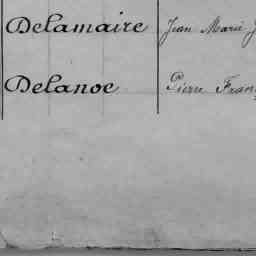 Delamaire Jean Marie
Delanoe Pierre